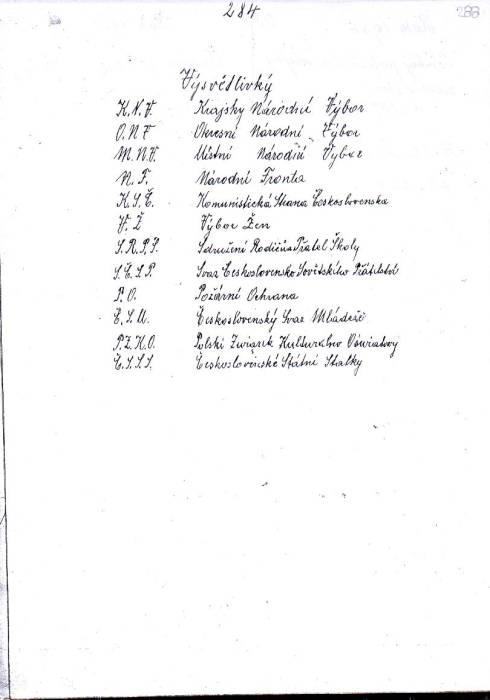 284
288
Vysvětlivky
K.N.V. Krajsky Národní Výbor
O.N.V. Okresní Národní Výbor
M.N.V. Místní Národní Výbor
N.F. Národní Fronta
K.S.Č. Komunistická Strana Československa
V.Ž Výbor Žen
S.R.P.Š. Sdružení Rodičů a Přatel Školy
S.Č.S.P. Svaz Československo Sovětského Přátelství
P.O. Požární Ochrana
Č.S.M. Československý Svaz Mládeže
P.Z.K.O. Polski Związek Kulturalno Oświatowy
Č.S.S.S. Československé Státní Statky